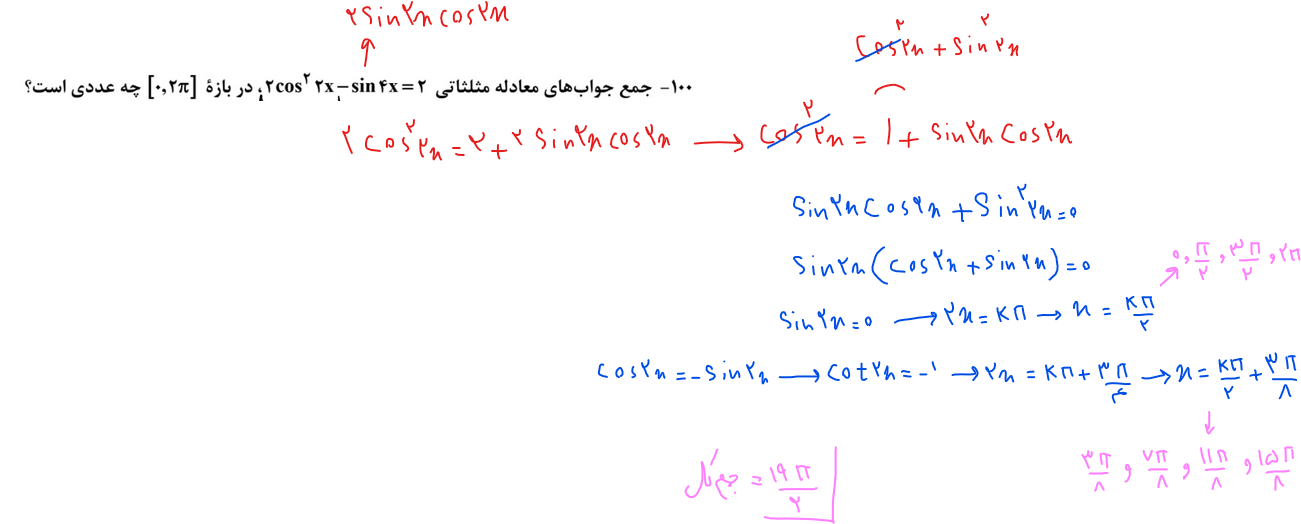 ۲sin۲x cos۲x
cos²۲x + sin²۲x
۱۰۰- جمع جواب‌های معادله مثلثاتی ۲cos²۲x - sin۴x = ۲، در بازۀ [۰,۲π] چه عددی است؟
۲cos²۲x = ۲ + ۲sin۲x cos۲x → cos²۲x = 1 + sin۲x cos۲x
sin۲x cos۲x + sin²۲x = ۰
sin۲x (cos۲x + sin۲x) = ۰
۰, π/۲, ۳π/۲, ۲π
sin۲x = ۰ → ۲x = Kπ → x = Kπ/۲
cos۲x = -sin۲x → cot۲x = -۱ → ۲x = Kπ + ۳π/۴ → x = Kπ/۲ + ۳π/۸
۳π/۸ و ۷π/۸ و ۱۱π/۸ و ۱۵π/۸
جمع کل = ۱۹π/۲